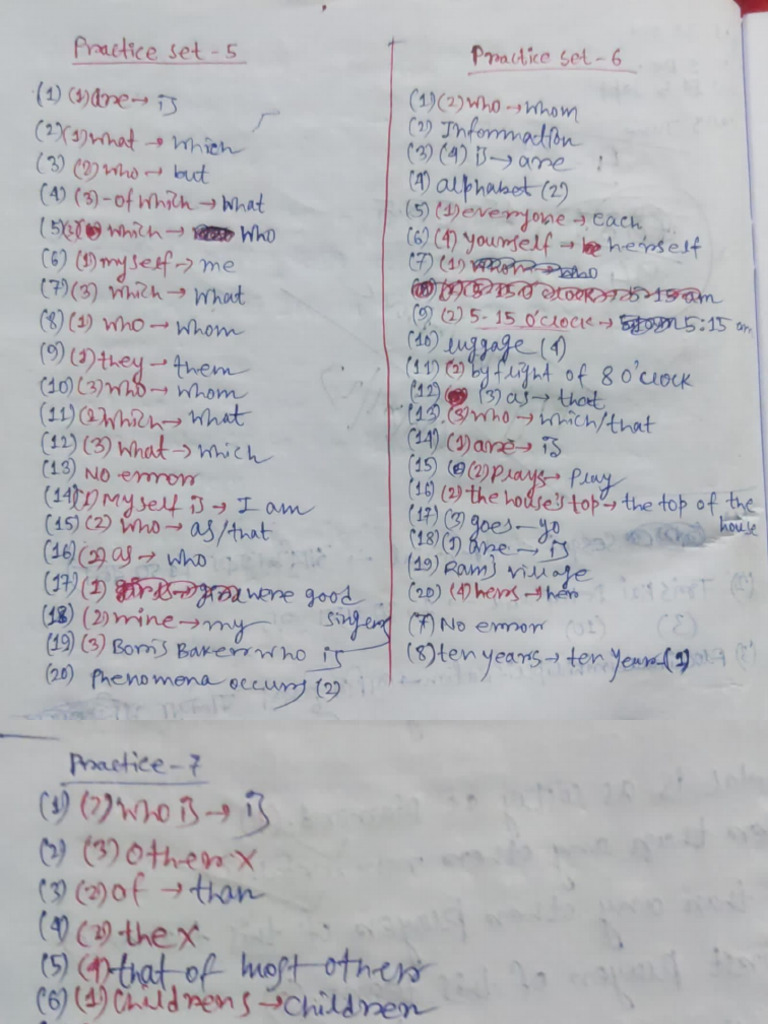 Practice set - 5
(1) (1) are → is
(2) (1) what → which
(3) (2) who → but
(4) (3) - of which → what
(5) which → who
(6) (1) myself → me
(7) (3) which → what
(8) (1) who → whom
(9) (1) they → them
(10) (3) who → whom
(11) (2) which → what
(12) (3) what → which
(13) No error
(14) (1) Myself is → I am
(15) (2) who → as/that
(16) (2) as → who
(17) (1) were good singers
(18) (2) mine → my
(19) (3) Boris Baker who is
(20) Phenomena occurs (2)
Practice set - 6
(1) (2) who → whom
(2) Information
(3) (4) is → are
(4) alphabet (2)
(5) (1) everyone → each
(6) (4) yourself → herself
(7) (1)
(9) (2) 5-15 O'clock → 5:15 am
(10) luggage (4)
(11) (2) by flight of 8 O'clock
(12) (3) as → that
(13) (3) who → which/that
(14) (1) are → is
(15) (2) Plays → Play
(16) (2) the house's top → the top of the house
(17) (3) goes - go
(18) (1) are → is
(19) Ram's village
(20) (4) hers → her
(7) No error
(8) ten years → ten year (1)
Practice - 7
(1) (2) who is → is
(2) (3) other X
(3) (2) of → than
(4) (2) the X
(5) (4) that of most others
(6) (1) Childrens → Children